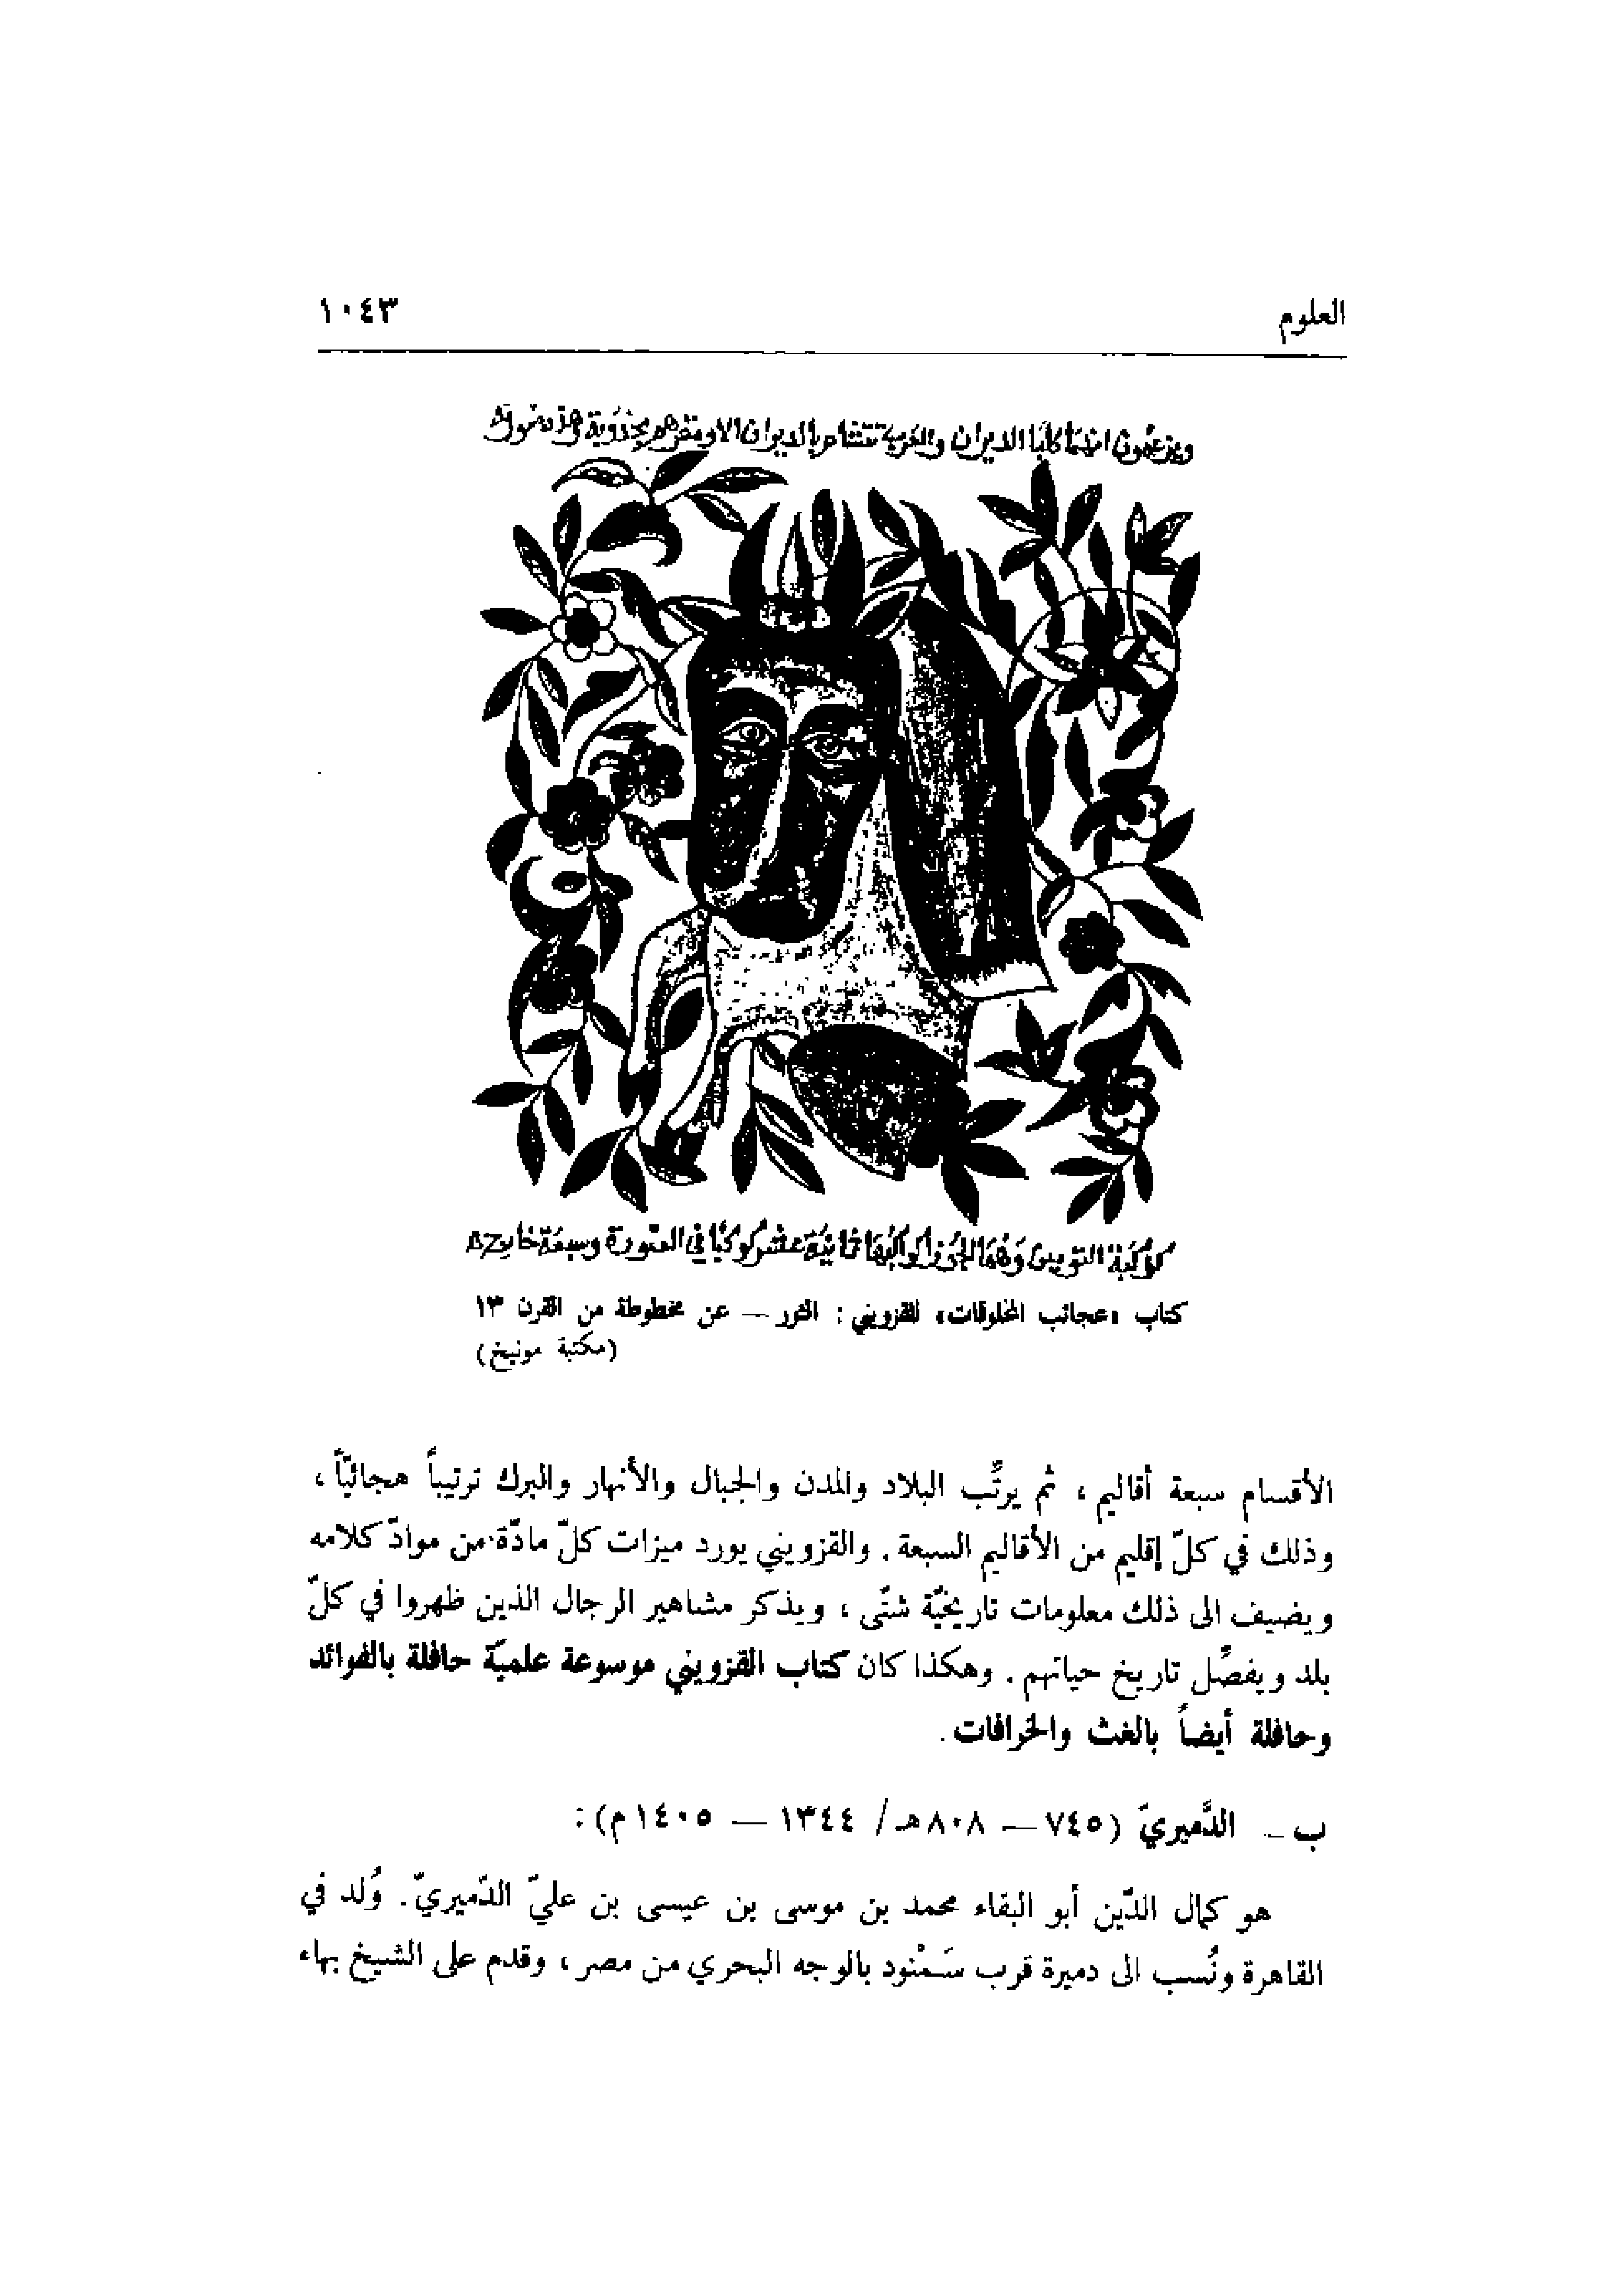 العلوم
١٠٤٣
ويزعمون انهما كلبا الديران والعرب تتشاءم بالديران
كوكبة التويمين وهما الجوزا كواكبها ثمانية عشر كوكبا في الصورة وسبعة خارج
كتاب «عجائب المخلوقات» للقزويني : الثور — عن مخطوطة من القرن ١٣
(مكتبة مونيخ)
الأقسام سبعة أقاليم ، ثم يرتِّب البلاد والمدن والجبال والأنهار والبرك ترتيباً هجائيّاً ،
وذلك في كلّ إقليم من الأقاليم السبعة . والقزويني يورد ميزات كلّ مادّة من موادّ كلامه
ويضيف الى ذلك معلومات تاريخيّة شتّى ، ويذكر مشاهير الرجال الذين ظهروا في كلّ
بلد ويفصِّل تاريخ حياتهم . وهكذا كان كتاب القزويني موسوعة علميّة حافلة بالفوائد
وحافلة أيضاً بالغث والخرافات .
ب ـ الدَّميريّ (٧٤٥ — ٨٠٨ هـ/ ١٣٤٤ — ١٤٠٥ م) :
هو كمال الدّين أبو البقاء محمد بن موسى بن عيسى بن عليّ الدّميريّ . وُلد في
القاهرة ونُسب الى دميرة قرب سَمْنود بالوجه البحري من مصر ، وقدم على الشيخ بهاء